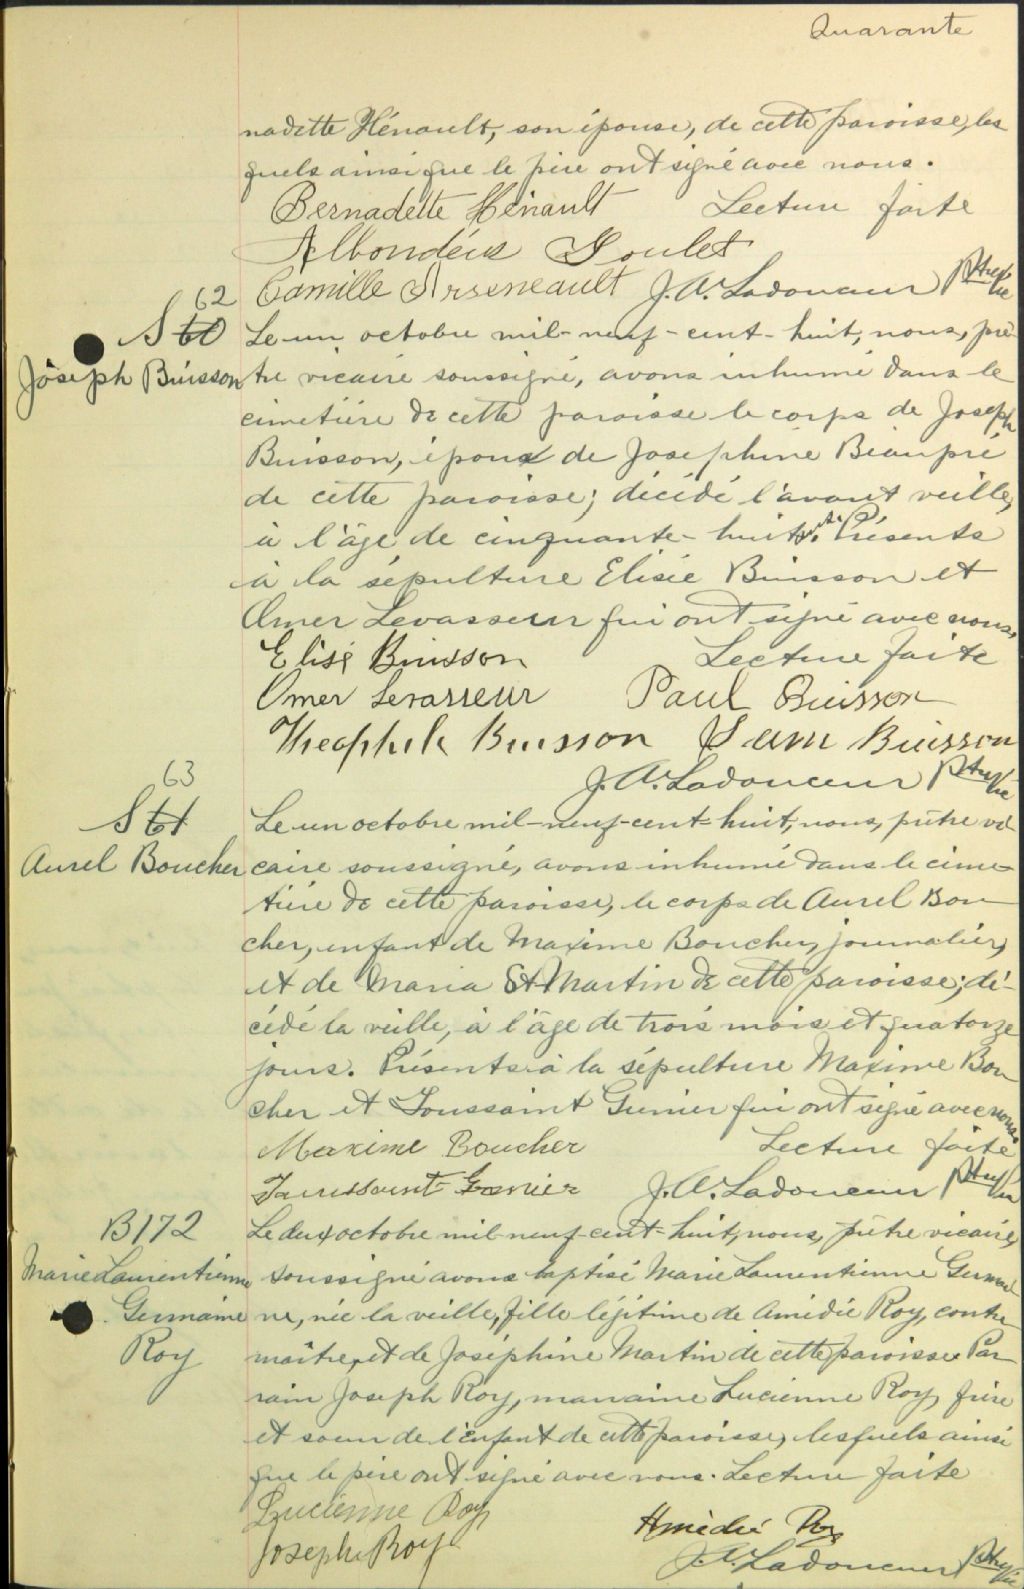 Quarante
nadette Hénault, son épouse, de cette paroisse, les
quels ainsi que le père ont signé avec nous.
Bernadette Hénault Lecture faite
Albondéus Goulet
Camille Arseneault J. A. Ladouceur Ptre Vic
62
S 60
Joseph Buisson
Le un octobre mil-neuf-cent-huit, nous, prê-
tre vicaire soussigné, avons inhumé dans le
cimetière de cette paroisse le corps de Joseph
Buisson, époux de Josephine Beaupré
de cette paroisse; décédé l'avant veille,
à l'âge de cinquante-huit. Présents
à la sépulture Elisée Buisson et
Omer Levasseur qui ont signé avec nous.
Elisé Buisson Lecture faite
Omer Levasseur Paul Buisson
Theophile Buisson Sam Buisson
J. A. Ladouceur Ptre Vic
63
S 61
Aurel Boucher
Le un octobre mil-neuf-cent-huit, nous, prêtre vi-
caire soussigné, avons inhumé dans le cime-
tière de cette paroisse, le corps de Aurel Bou-
cher, enfant de Maxime Boucher, journalier,
et de Maria St Martin de cette paroisse; dé-
cédé la veille, à l'âge de trois mois et quatorze
jours. Présents à la sépulture Maxime Bou
cher et Toussaint Grenier qui ont signé avec nous.
Maxime Boucher Lecture faite
Toussaint Grenier J. A. Ladouceur Ptre Vic
B172
Marie Laurentienne
Germaine
Roy
Le deux octobre mil-neuf-cent-huit, nous, prêtre vicaire,
soussigné avons baptisé Marie Laurentienne Germai
ne, née la veille, fille légitime de Amédée Roy, contre
maître, et de Joséphine Martin de cette paroisse. Par-
rain Joseph Roy, marraine Lucienne Roy, frère
et soeur de l'enfant de cette paroisse, lesquels ainsi
que le père ont signé avec nous. Lecture faite
Lucienne Roy
Amédée Roy
Joseph Roy
J. A. Ladouceur Ptre Vic